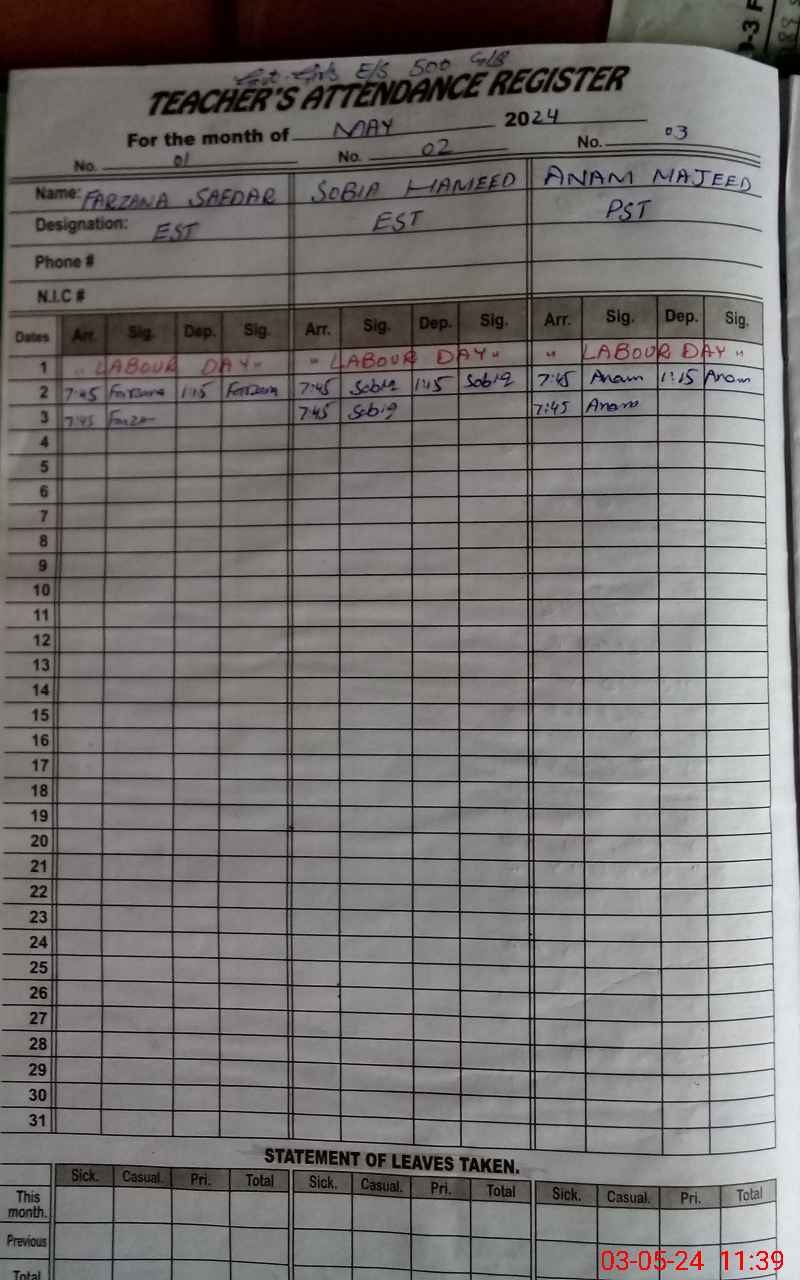 Govt. Girls E/S 500 G/B
TEACHER'S ATTENDANCE REGISTER
For the month of MAY 2024
No. 01 No. 02 No. 03
Name: FARZANA SAFDAR SOBIA HAMEED ANAM MAJEED
Designation: EST EST PST
Phone #
N.I.C #
Dates Arr. Sig. Dep. Sig. Arr. Sig. Dep. Sig. Arr. Sig. Dep. Sig.
1 "LABOUR DAY" "LABOUR DAY" "LABOUR DAY"
2 7:45 Farzana 1:15 Farzana 7:45 Sobia 1:15 Sobia 7:45 Anam 1:15 Anam
3 7:45 7:45 Sobia 7:45 Anam
4
5
6
7
8
9
10
11
12
13
14
15
16
17
18
19
20
21
22
23
24
25
26
27
28
29
30
31
STATEMENT OF LEAVES TAKEN.
Sick. Casual. Pri. Total Sick. Casual. Pri. Total Sick. Casual. Pri. Total
This
month.
Previous
Total
03-05-24 11:39